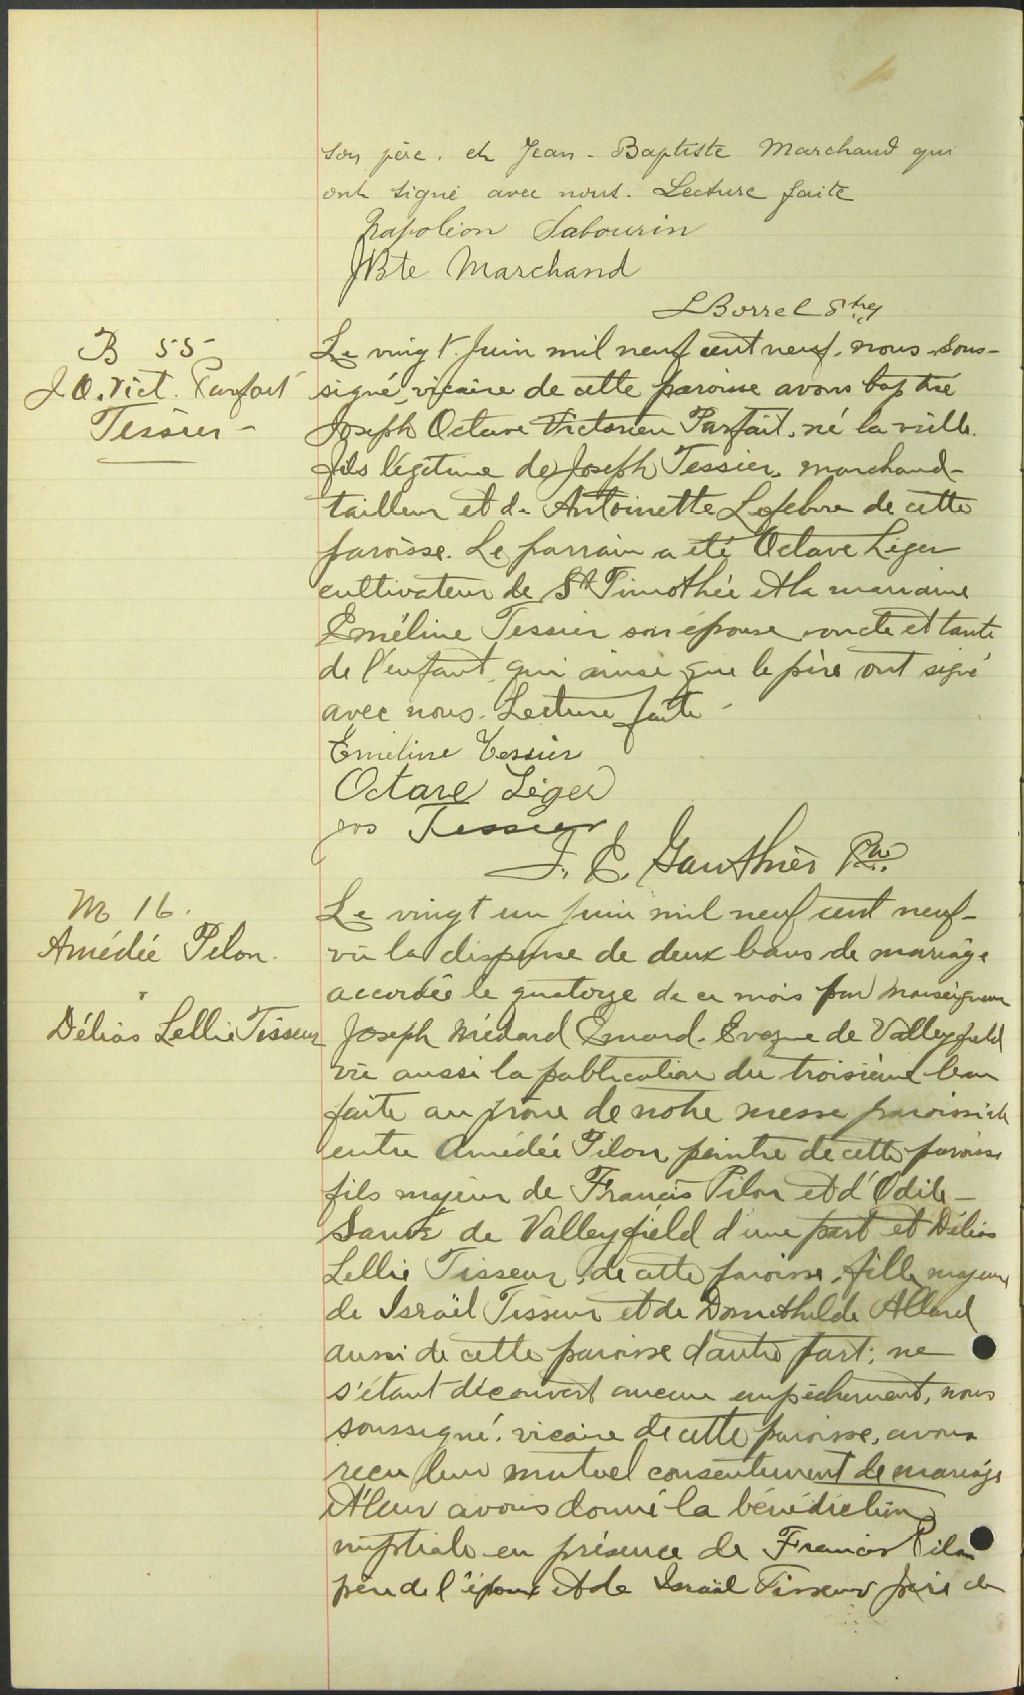 son père. et Jean-Baptiste Marchand qui
ont signé avec nous. Lecture faite
Napoléon Sabourin
JBte Marchand
LBorrel Ptre
B 55
J. O. Vict. Parfait
Tessier -
Le vingt Juin mil neuf cent neuf, nous sous-
signé, vicaire de cette paroisse avons baptisé
Joseph Octave Victorien Parfait, né la veille.
fils légitime de Joseph Tessier, marchand-
tailleur et de Antoinette Lefebvre de cette
paroisse. Le parrain a été Octave Léger
cultivateur de St Timothée et la marraine
Eméline Tessier son épouse, oncle et tante
de l'enfant, qui ainsi que le père ont signé
avec nous. Lecture faite -
Emeline Tessier
Octave Léger
Jos Tessier
J. E. Gauthier Ptre.
M 16.
Amédée Pilon.
&
Délias Lellie Tisseur
Le vingt un juin mil neuf cent neuf-
vû la dispense de deux bans de mariage
accordée le quatorze de ce mois par Monseigneur
Joseph Médard Emard, Evêque de Valleyfield
vû aussi la publication du troisième ban
faite au prône de notre messe paroissiale
entre Amédée Pilon, peintre de cette paroisse
fils majeur de Francis Pilon et d'Odile-
Sauvé de Valleyfield d'une part et Délias
Lellie Tisseur, de cette paroisse, fille majeure
de Israël Tisseur et de Domithilde Allard
aussi de cette paroisse d'autre part; ne
s'étant découvert aucun empêchement, nous
soussigné, vicaire de cette paroisse, avons
reçu leur mutuel consentement de mariage
et leur avons donné la bénédiction
nuptiale en présence de Francis Pilon
père de l'époux et de Israël Tisseur père de